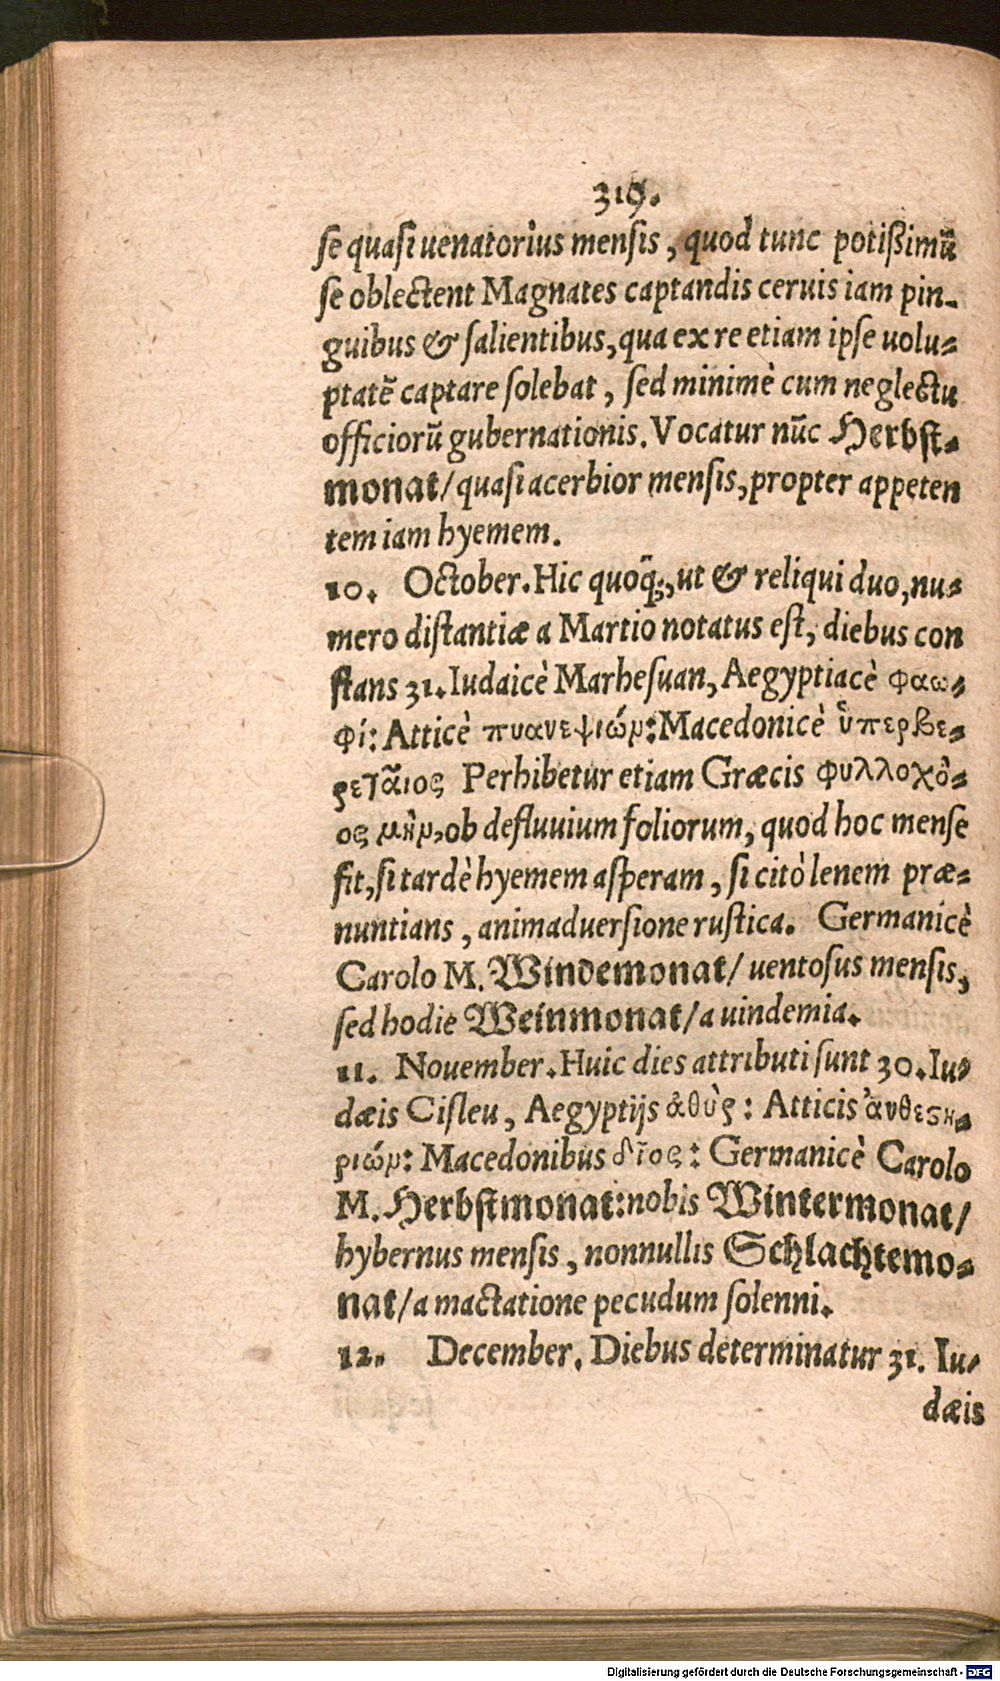 319.
ſe quaſi uenatorius menſis, quod tunc potißimū
ſe oblectent Magnates captandis ceruis iam pin-
guibus & ſalientibus, qua ex re etiam ipſe uolu-
ptatẽ captare ſolebat, ſed minimè cum neglectu
officiorū gubernationis. Vocatur nūc Herbſt-
monat/ quaſi acerbior menſis, propter appeten
tem iam hyemem.
10. October. Hic quoq;, ut & reliqui duo, nu-
mero diſtantiæ a Martio notatus eſt, diebus con
ſtans 31. Iudaicè Marheſuan, Aegyptiacè φαω-
φί: Atticè πυανεψιών: Macedonicè ὑπερβε-
ρεταῖος Perhibetur etiam Græcis φυλλοχό-
ος μὴν, ob defluuium foliorum, quod hoc menſe
fit, ſi tardè hyemem aſperam, ſi citò lenem præ-
nuntians, animaduerſione ruſtica. Germanicè
Carolo M. Windemonat/ uentoſus menſis,
ſed hodie Weinmonat/ a uindemia.
11. November. Huic dies attributi ſunt 30. Iu-
dæis Ciſleu, Aegyptijs ἀθὺρ: Atticis ἀνθεςη-
ριών: Macedonibus δῖος: Germanicè Carolo
M. Herbſtmonat: nobis Wintermonat/
hybernus menſis, nonnullis Schlachtemo-
nat/ a mactatione pecudum ſolenni.
12. December. Diebus determinatur 31. Iu-
dæis
Digitalisierung gefördert durch die Deutsche Forschungsgemeinschaft - DFG